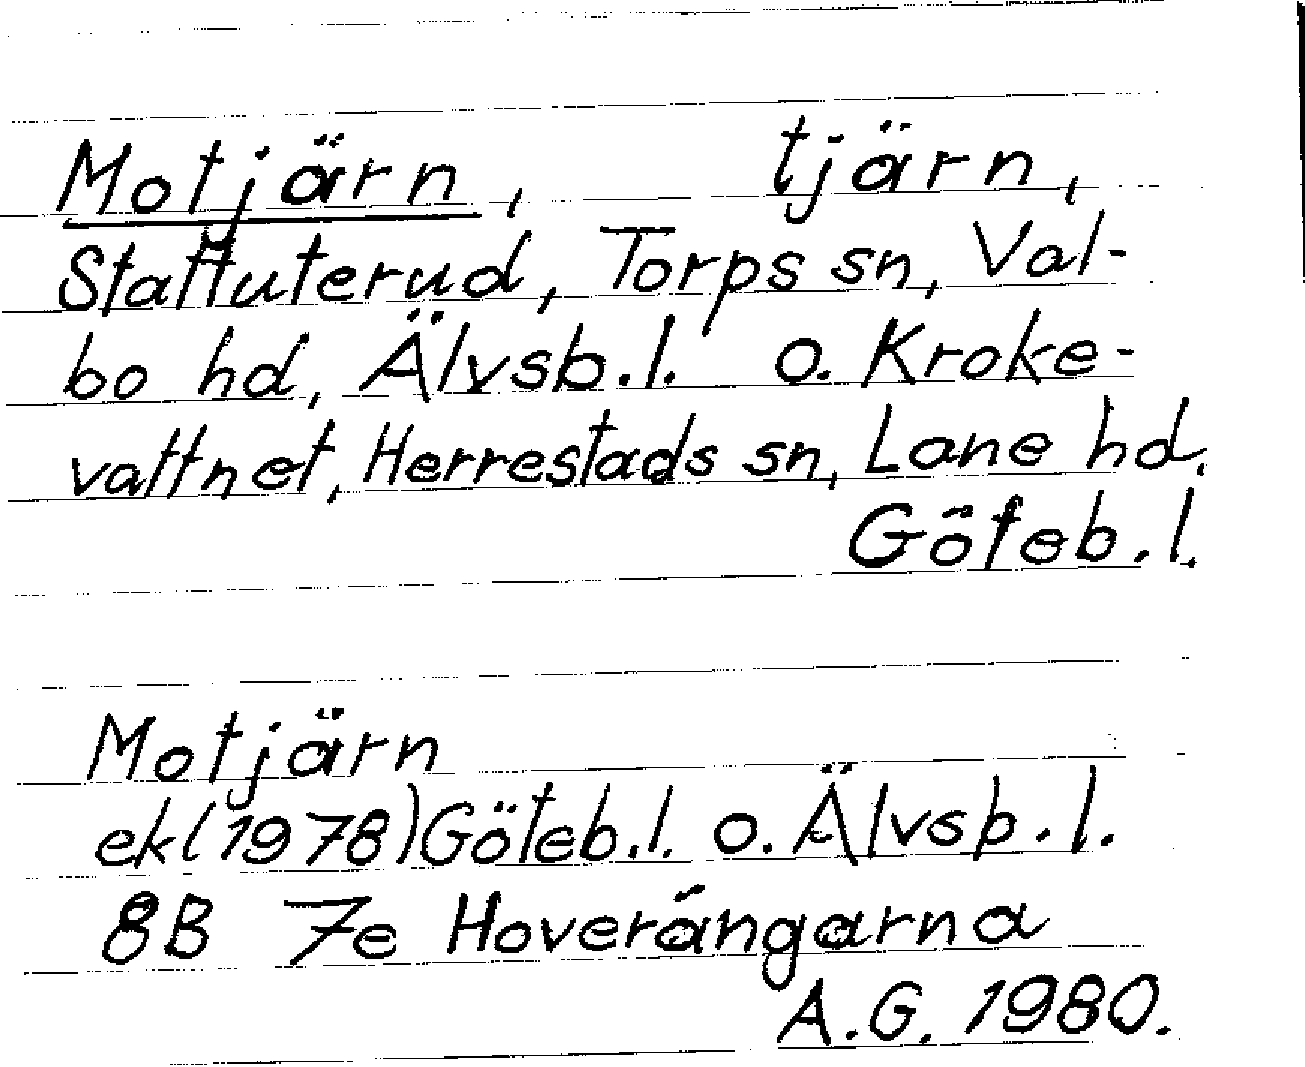 Motjärn, tjärn,
Stattuterud, Torps sn, Val-
bo hd, Älvsb.l. o. Kroke-
vattnet, Herrestads sn, Lane hd.
Göteb.l.
Motjärn
ekl(1978)Göteb.l. o. Älvsb.l.
8B 7e Hoverängarna
A.G. 1980.